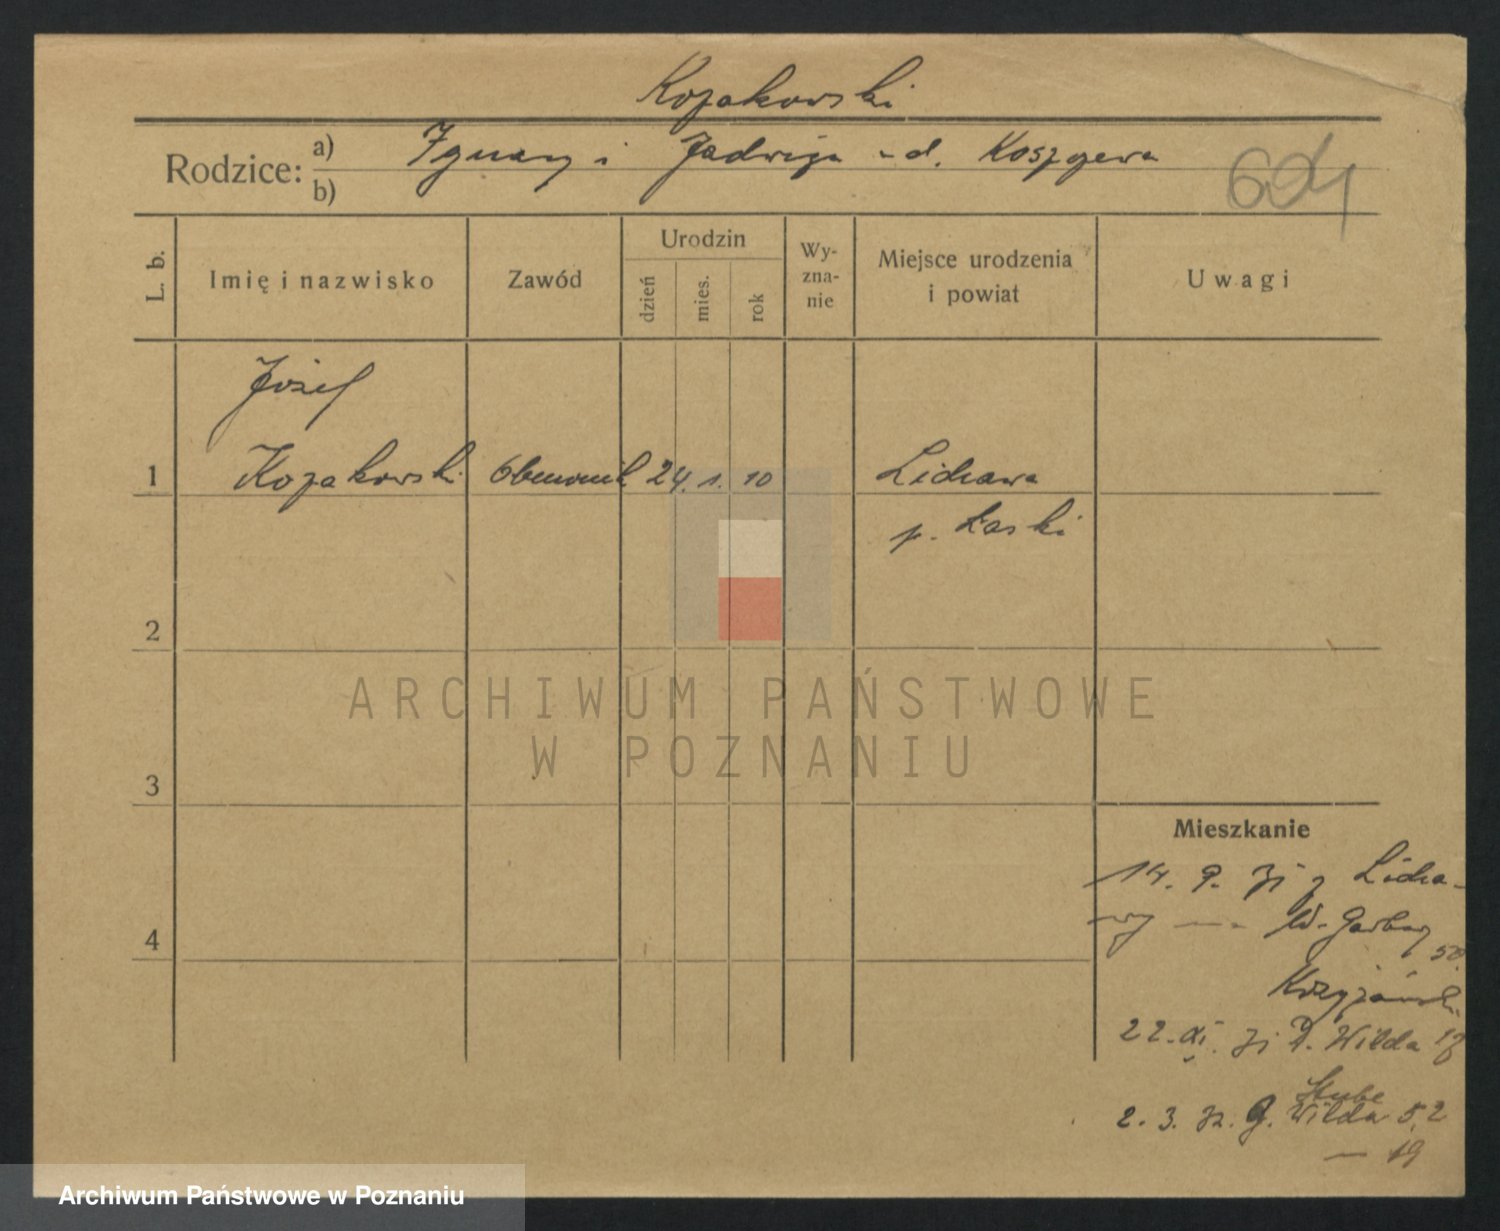 Kozakowski
Rodzice: a) Ignacy i Jadwiga z d.
b)
604
L. b.
Imię i nazwisko
Zawód
Urodzin
dzień
mies.
rok
Wy-
zna-
nie
Miejsce urodzenia
i powiat
Uwagi
Józef
1 Kozakowski 24. 1. 10 Lichawa
p. Łaski
2
ARCHIWUM PAŃSTWOWE
W POZNANIU
3
Mieszkanie
14. 9. 31 z Licha-
wy — W. Garbary
50
4
22. 31 D. Wilda 18
Stube
2. 3. 32. G. Wilda 52
— 19
Archiwum Państwowe w Poznaniu